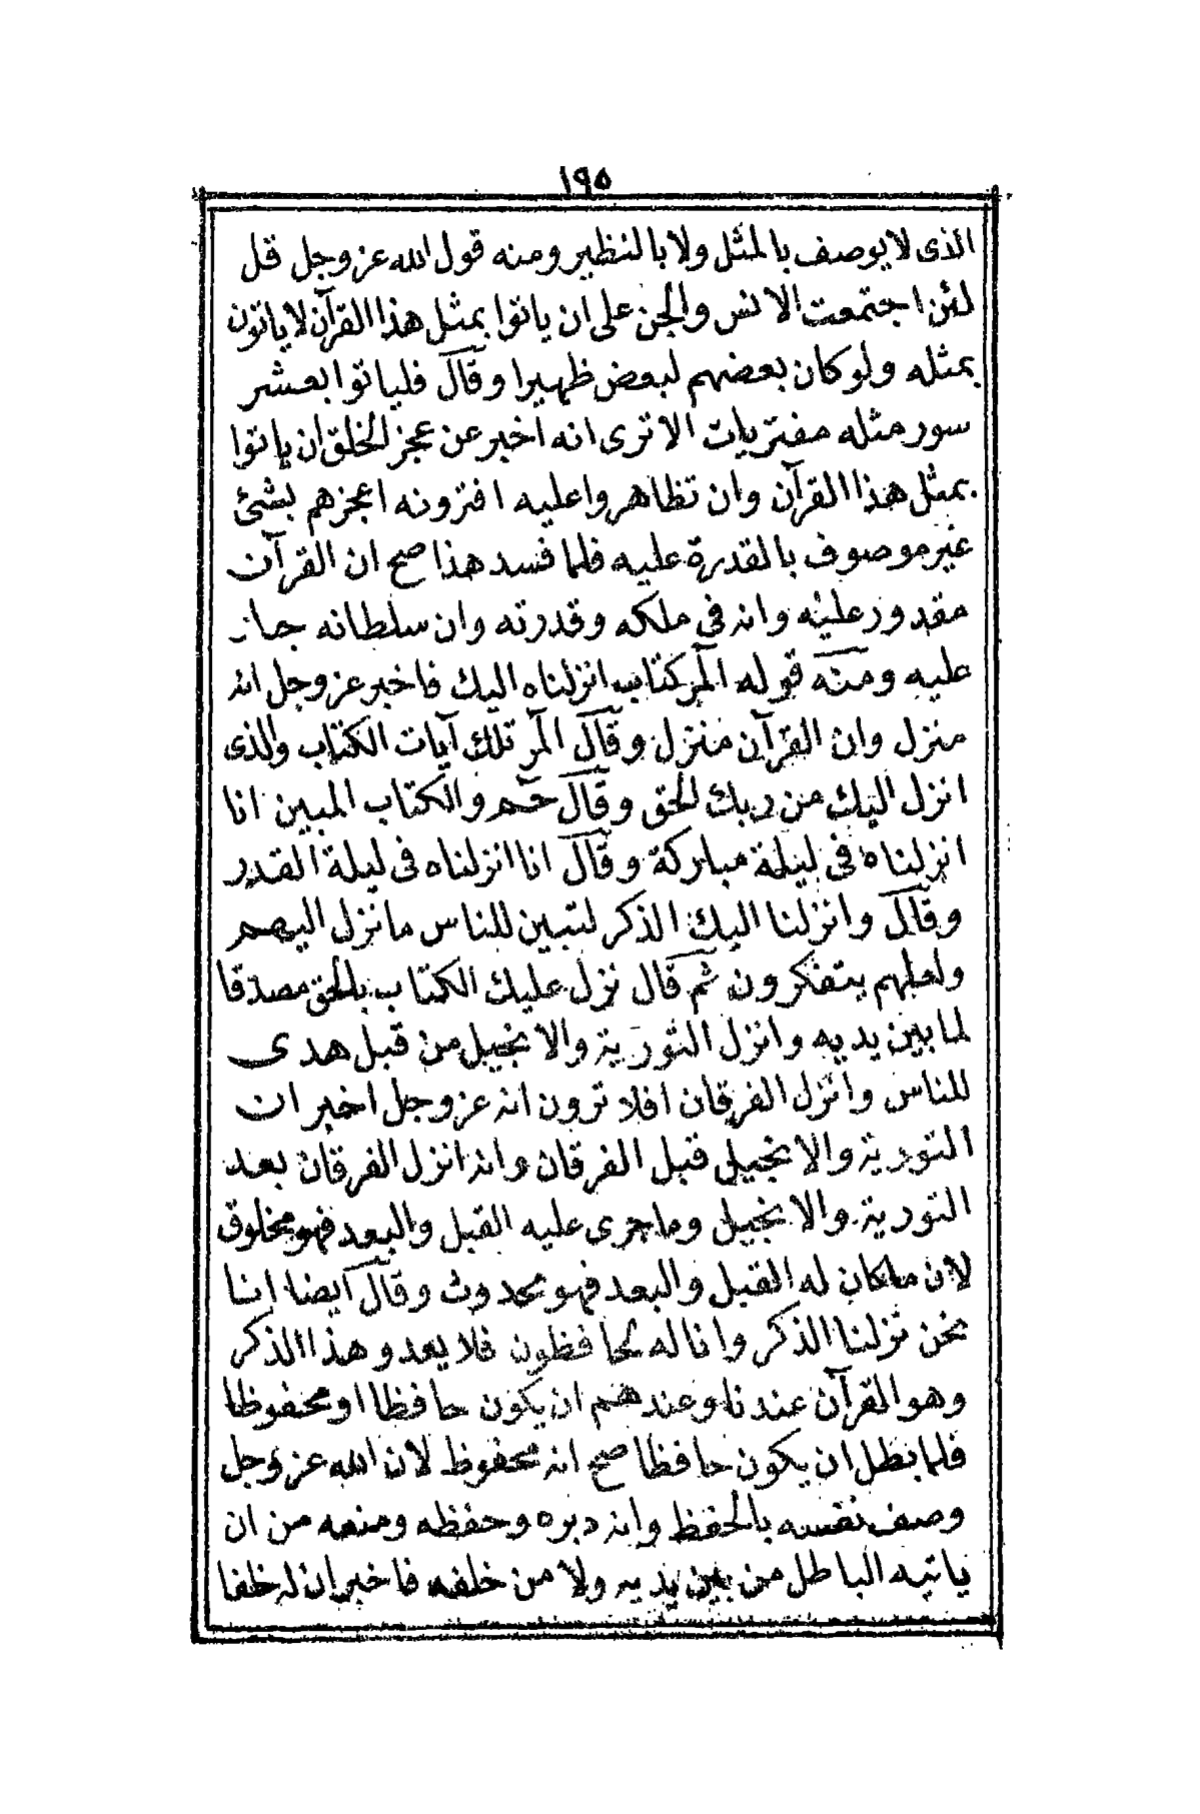 ١٩٥
الذى لا يوصف بالمثل ولا بالنظير ومنه قول الله عز وجل قل
لئن اجتمعت الانس والجن على ان ياتوا بمثل هذا القرآن لا ياتون
بمثله ولو كان بعضهم لبعض ظهيرا وقال فلياتوا بعشر
سور مثله مفتريات الا ترى انه اخبر عن عجز الخلق ان ياتوا
بمثل هذا القرآن وان تظاهروا عليه افترونه اعجزهم بشئ
غير موصوف بالقدرة عليه فلما فسد هذا صح ان القرآن
مقدور عليه وانه فى ملكه وقدرته وان سلطانه جار
عليه ومنه قوله الٓر كتاب انزلناه اليك فاخبر عز وجل انه
منزل وان القرآن منزل وقال الٓمر تلك آيات الكتاب والذى
انزل اليك من ربك الحق وقال حٓم والكتاب المبين انا
انزلناه فى ليلة مباركة وقال انا انزلناه فى ليلة القدر
وقال وانزلنا اليك الذكر لتبين للناس ما نزل اليهم
ولعلهم يتفكرون ثم قال نزل عليك الكتاب بالحق مصدقا
لما بين يديه وانزل التورية والانجيل من قبل هدى
للناس وانزل الفرقان افلا ترون انه عز وجل اخبر ان
التورية والانجيل قبل الفرقان وانه انزل الفرقان بعد
التورية والانجيل وما جرى عليه القبل والبعد فهو مخلوق
لان ما كان له القبل والبعد فهو محدوث وقال ايضا انا
نحن نزلنا الذكر وانا له لحافظون فلا يعدو هذا الذكر
وهو القرآن عندنا وعندهم ان يكون حافظا او محفوظا
فلما بطل ان يكون حافظا صح انه محفوظ لان الله عز وجل
وصف نفسه بالحفظ وانه دبره وحفظه ومنعه من ان
ياتيه الباطل من بين يديه ولا من خلفه فاخبر ان له خلفا